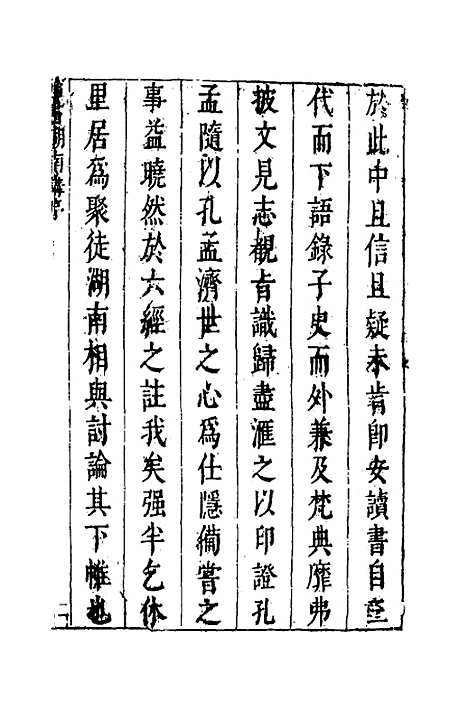 於此中且信且疑未肯即安讀書自三
代而下語錄子史而外兼及梵典靡弗
披文見志覩旨識歸盡滙之以印證孔
孟隨以孔孟濟世之心爲仕隱備嘗之
事益曉然於六經之註我矣强半乞休
里居爲聚徒湖南相與討論其下帷也
湖南講
二